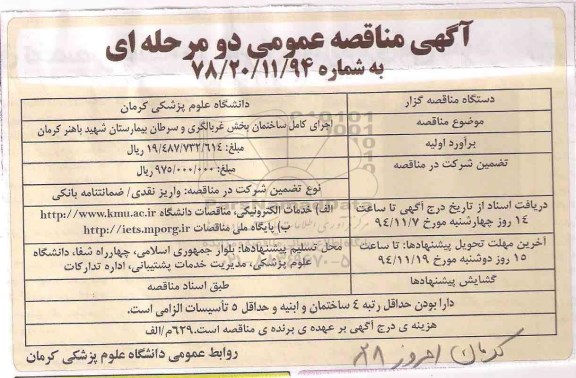 آگهی مناقصه عمومی دو مرحله ای
به شماره ۷۸/۲۰/۱۱/۹۴
دستگاه مناقصه گزار
دانشگاه علوم پزشکی کرمان
موضوع مناقصه
اجرای کامل ساختمان بخش غربالگری و سرطان بیمارستان شهید باهنر کرمان
برآورد اولیه
مبلغ: ۱۹/۴۸۷/۷۳۲/۶۱۴ ریال
تضمین شرکت در مناقصه
مبلغ: ۹۷۵/۰۰۰/۰۰۰ ریال
نوع تضمین شرکت در مناقصه: واریز نقدی/ ضمانتنامه بانکی
دریافت اسناد از تاریخ درج آگهی تا ساعت
۱۴ روز چهارشنبه مورخ ۹۴/۱۱/۷
الف) خدمات الکترونیکی، مناقصات دانشگاه http://www.kmu.ac.ir
ب) پایگاه ملی مناقصات http://iets.mporg.ir
آخرین مهلت تحویل پیشنهادها: تا ساعت
۱۵ روز دوشنبه مورخ ۹۴/۱۱/۱۹
محل تسلیم پیشنهادها: بلوار جمهوری اسلامی، چهارراه شفا، دانشگاه
علوم پزشکی، مدیریت خدمات پشتیبانی، اداره تدارکات
گشایش پیشنهادها
طبق اسناد مناقصه
دارا بودن حداقل رتبه ۴ ساختمان و ابنیه و حداقل ۵ تأسیسات الزامی است.
هزینه ی درج آگهی بر عهده ی برنده ی مناقصه است.۶۲۹م/الف
روابط عمومی دانشگاه علوم پزشکی کرمان
کرمان امروز ۲۸